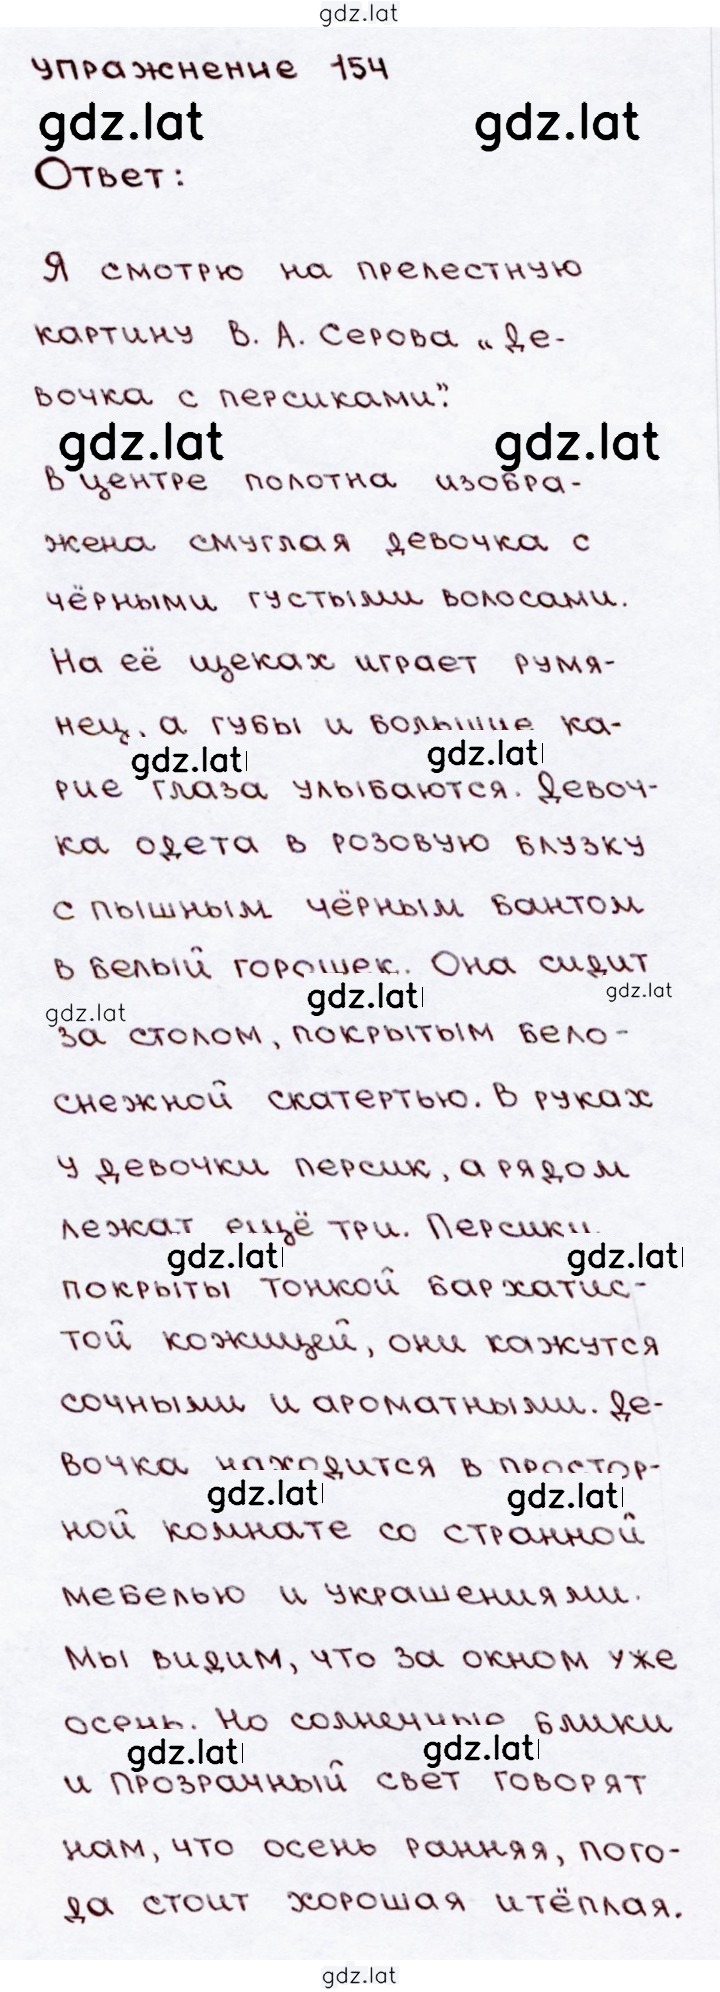 gdz.lat
упражнение 154
gdz.lat gdz.lat
Ответ:
Я смотрю на прелестную
картину В. А. Серова „Де-
вочка с персиками".
gdz.lat gdz.lat
В центре полотна изобра-
жена смуглая девочка с
чёрными густыми волосами.
На её щеках играет румя-
нец, а губы и большие ка-
gdz.lat gdz.lat
рие глаза улыбаются. Девоч-
ка одета в розовую блузку
с пышным чёрным бантом
в белый горошек. Она сидит
gdz.lat gdz.lat gdz.lat
за столом, покрытым бело-
снежной скатертью. В руках
у девочки персик, а рядом
лежат ещё три. Персики
gdz.lat gdz.lat
покрыты тонкой бархатис-
той кожицей, они кажутся
сочными и ароматными. Де-
вочка находится в простор-
gdz.lat gdz.lat
ной комнате со странной
мебелью и украшениями.
Мы видим, что за окном уже
осень. Но солнечные блики
gdz.lat gdz.lat
и прозрачный свет говорят
нам, что осень ранняя, пого-
да стоит хорошая и тёплая.
gdz.lat